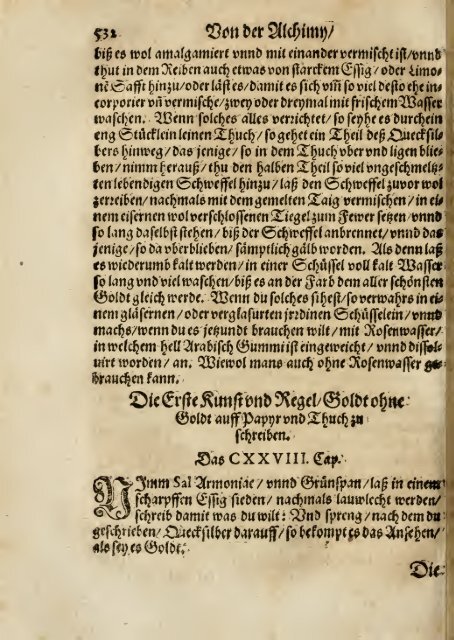 532 Von der Alchimy/
biß es wol amalgamiert vnnd mit einander vermischt ist/vnnd
thut in dem Reiben auch etwas von starckem Essig/oder Limo-
nē Safft hinzu/oder läst es/damit es sich vm̃ so viel desto ehe in-
corporier vn̄ vermische/zwey oder dreymal mit frischem Wasser
waschen. Wenn solches alles verrichtet/so seyhe es durch ein
eng Stücklein leinen Thuch/so gehet ein Theil deß Quecksil-
bers hinweg/das jenige/so in dem Thuch vber vnd ligen blie-
ben/nimm herauß/thu den halben Theil so viel vngeschmeltz-
ten lebendigen Schweffel hinzu/laß den Schweffel zuvor wol
zerreiben/nachmals mit dem gemelten Taig vermischen/in ei-
nem eisernen wol verschlossenen Tiegel zum Fewer setzen/vnnd
so lang daselbst stehen/biß der Schweffel anbrennet/vnnd das
jenige/so da vberblieben/sämptlich gälb worden. Als denn laß
es wiederumb kalt werden/in einer Schüssel voll kalt Wasser
so lang vnd viel waschen/biß es an der Farb dem aller schönsten
Goldt gleich werde. Wenn du solches sihest/so verwahrs in ei-
nem gläsernen/oder verglasurten jrrdinen Schüsselein/vnnd
machs/wenn du es jetzundt brauchen wilt/mit Rosenwasser/
in welchem hell Arabisch Gummi ist eingeweicht/vnnd dissol-
uirt worden/an. Wiewol mans auch ohne Rosenwasser ge-
brauchen kann.
Die Erste Kunst vnd Regel/Goldt ohne
Goldt auff Papyr vnd Thuch zu
schreiben.
Das CXXVIII. Cap.
NImm Sal Armoniac/vnnd Grünspan/laß in einem
scharpffen Essig sieden/nachmals lauwlecht werden/
schreib damit was du wilt: Vnd spreng/nach dem du
geschrieben/Quecksilber darauff/so bekompt es das Ansehen/
als sey es Goldt.
Die